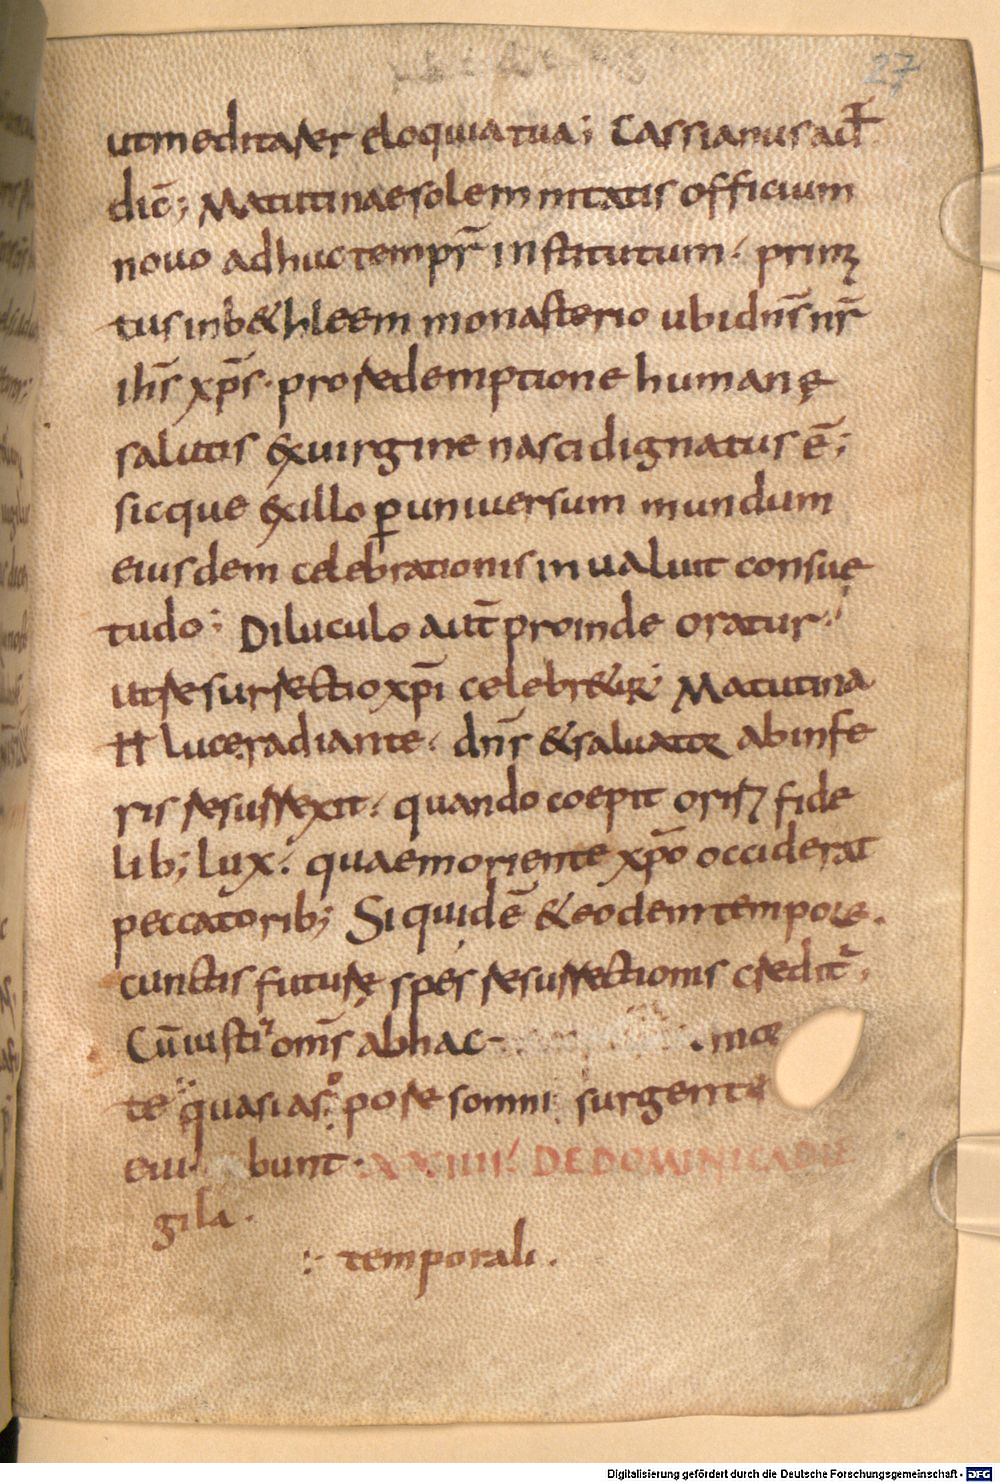 27
ut meditarer eloquia tua; Cassianus aut̄
dic̄; Matutinae solemnitatis officium
novo adhuc tempr̄ institutum. prim
tus in b&hleem monasterio ubi dn̄s nr̄
ih̄s xp̄s. pro redemptione humanę
salutis ex virgine nasci dignatus ē;
sicque ex illo ꝑ universum mundum
eiusdem celebrationis invaluit consue
tudo; Diluculo aut̄ proinde oratur.
ut resurrectio xp̄i celebr&ur; Matutina
luce radiante. dn̄s & salvator ab infe
ris resurrexit. quando coepit oriri fide
lib; lux. quae moriente xp̄o occiderat
peccatorib; Siquidē & eodem tempore.
cunctis futurę spes resurrectionis credit̄.
Cū iusti om̄s ab hac
te quasi a sopore somni surgente
bunt. XXIIII. DE DOMINICA DIE
gila.
temporali.
Digitalisierung gefördert durch die Deutsche Forschungsgemeinschaft - DFG